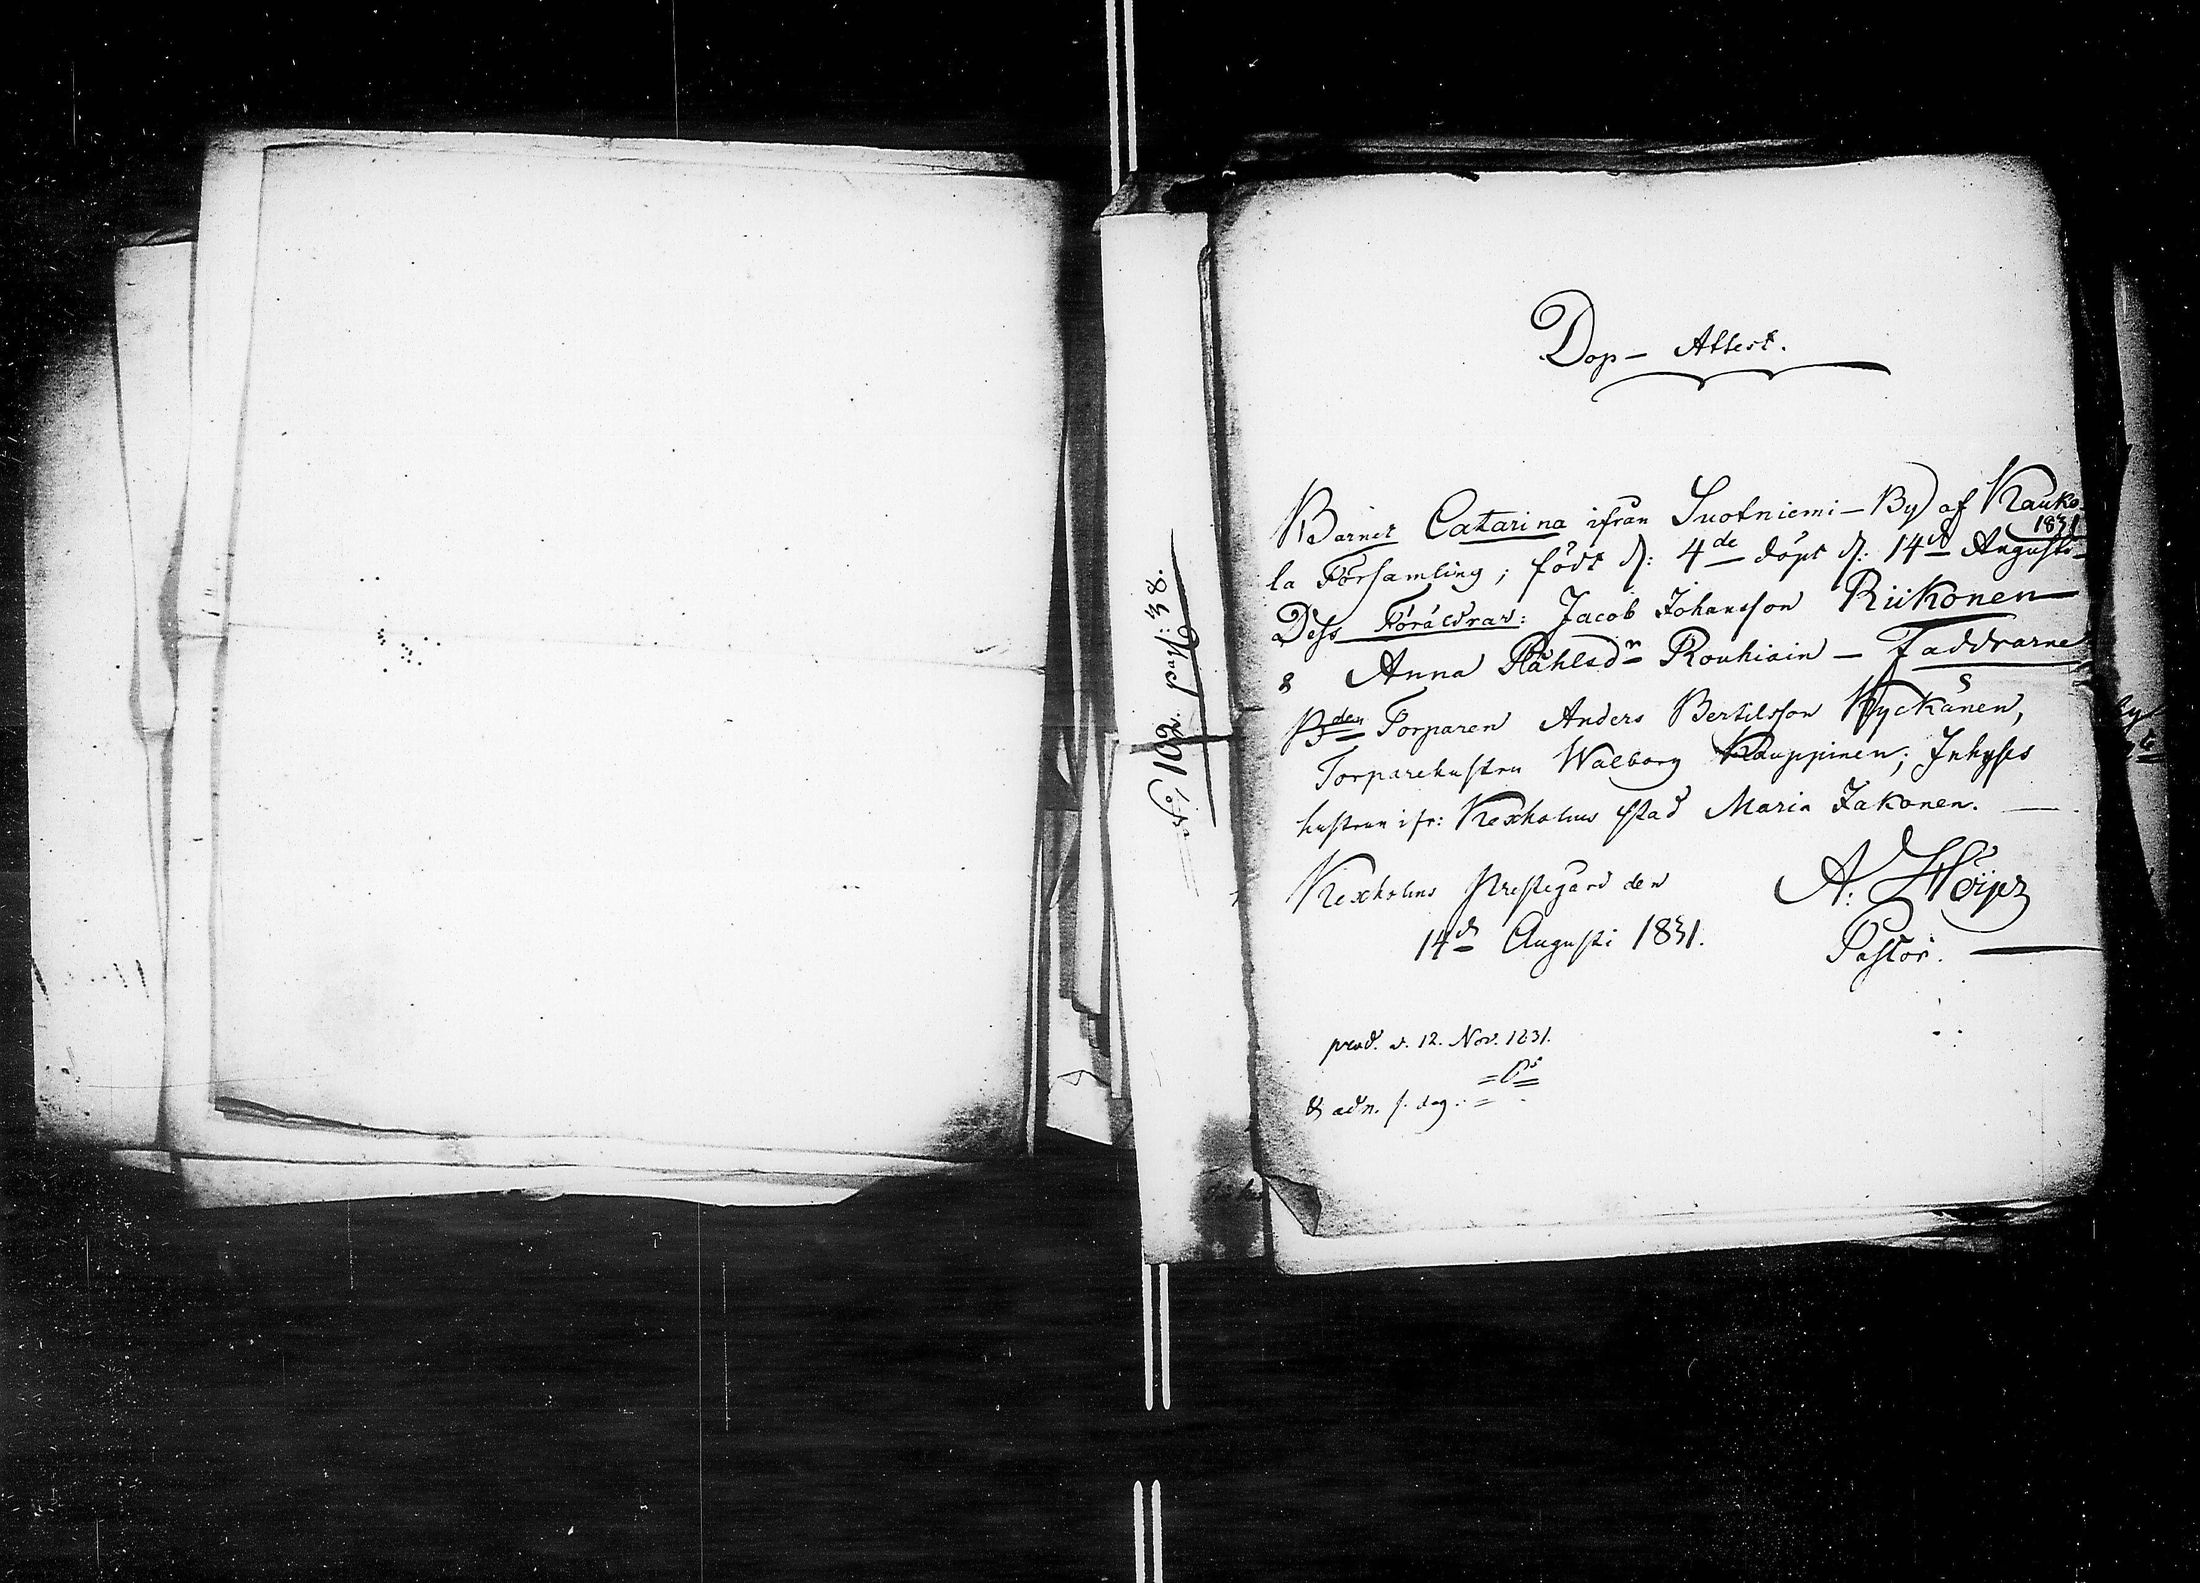 N:o 102. pag: 38.
Dop- Attest.
Barnet Catarina ifrån Suotniemi-By af Kauko-
1831
la Församling; född d: 4de döpt d: 14de Augusti-
Dess Föräldrar: Jacob Johansson Riikonen
& Anna Påhlsdr Rouhiain — Faddrarne
Torparen Anders Bertilsson Kyckänen,
Torparehustru Walborg Kauppinen; Inhyses
hustrun ifr: Kexholms stad Maria Jakonen.
Kexholms Prestegård den
14de Augusti 1831.
A:
Pastor.
prod. d. 12. Nov. 1831.
& adn. s. dag.